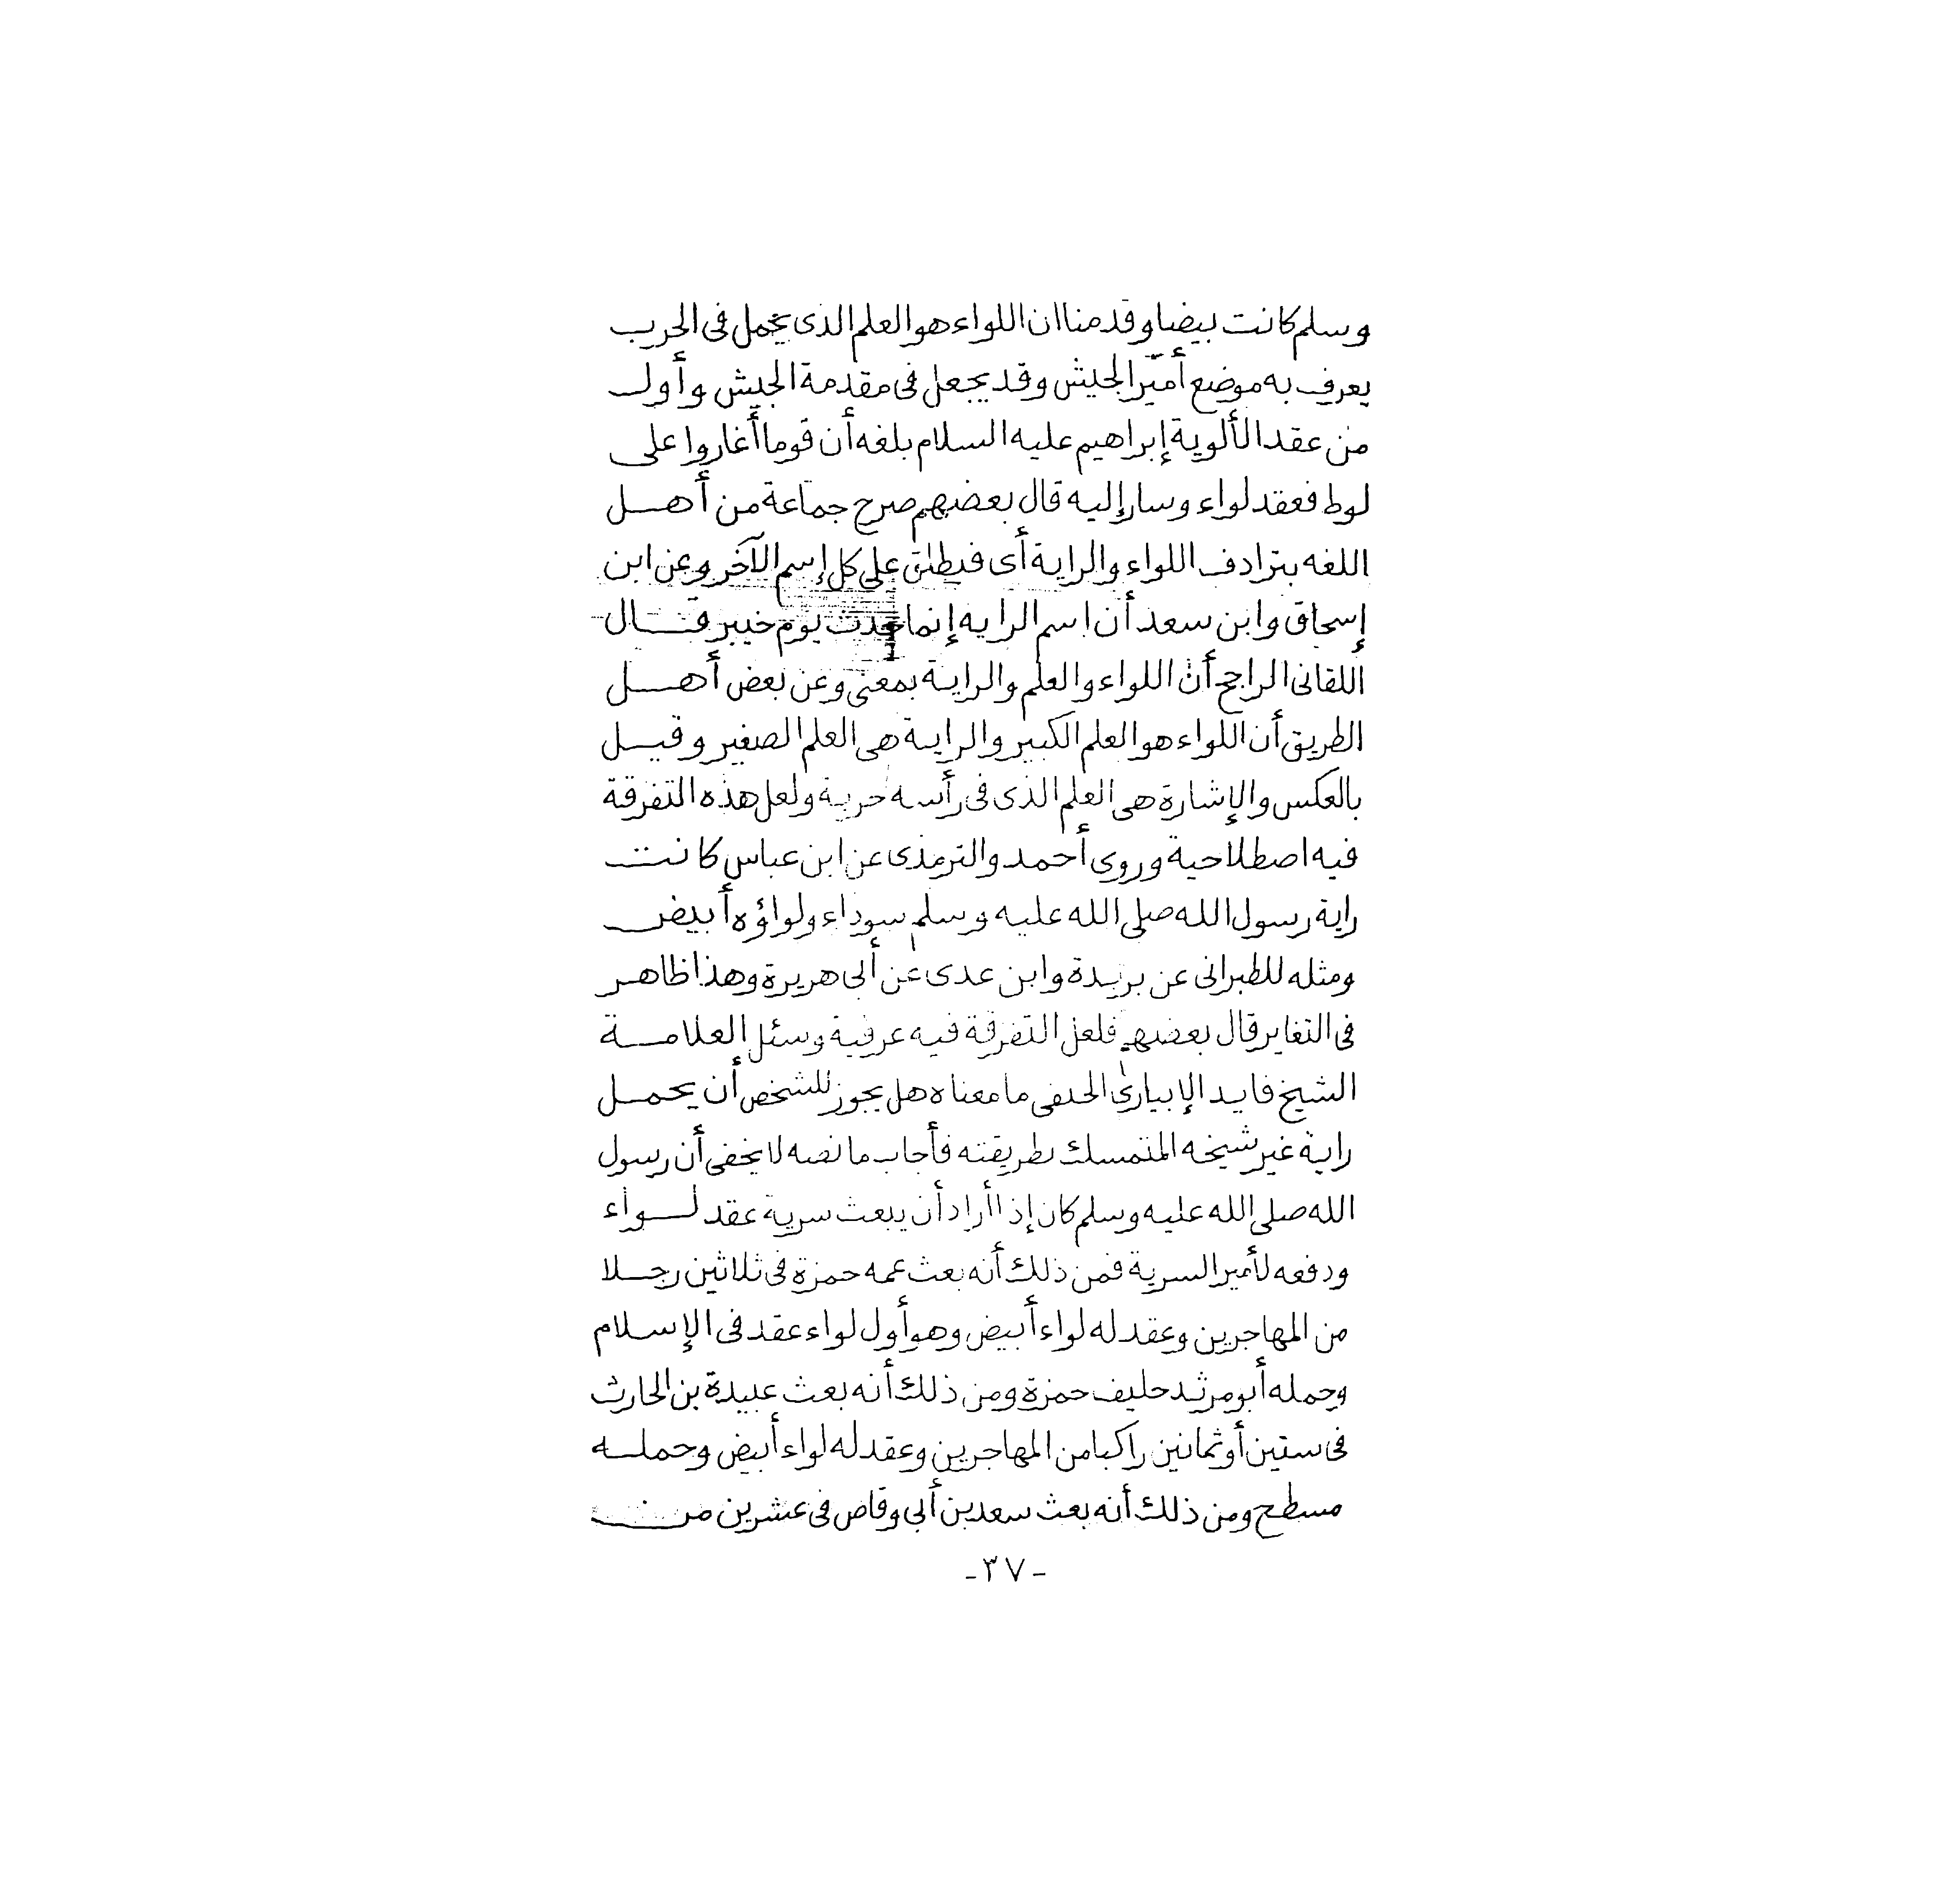 وسلم كانت بيضا وقدمنا ان اللواء هو العلم الذى يحمل فى الحرب
يعرف به موضع أمير الجيش وقد يجعل فى مقدمة الجيش وأول
من عقد الألوية إبراهيم عليه السلام بلغه أن قوما أغاروا على
لوط فعقد لواء وسار إليه قال بعضهم صرح جماعة من أهل
اللغه بترادف اللواء والراية أى فيطلق على كل إسم الآخر وعن ابن
إسحاق وابن سعد أن اسم الرايه إنما حدث يوم خيبر قال
اللقانى الراجح أن اللواء والعلم والراية بمعنى وعن بعض أهل
الطريق أن اللواء هو العلم الكبير والراية هى العلم الصغير وقيل
بالعكس والإشارة هى العلم الذى فى رأسه حربة ولعل هذه التفرقة
فيه اصطلاحية وروى أحمد والترمذى عن ابن عباس كانت
راية رسول الله صلى الله عليه وسلم سوداء ولواؤه أبيض
ومثله للطبرانى عن بريدة وابن عدى عن أبى هريرة وهذا ظاهر
فى التغاير قال بعضهم فلعل التفرقة فيه عرفية وسئل العلامة
الشيخ فايد الإبيارى الحنفى ما معناه هل يجوز للشخص أن يحمل
راية غير شيخه المتمسك بطريقته فأجاب ما نصه لا يخفى أن رسول
الله صلى الله عليه وسلم كان إذا أراد أن يبعث سرية عقد لواء
ودفعه لأمير السرية فمن ذلك أنه بعث عمه حمزة فى ثلاثين رجلا
من المهاجرين وعقد له لواء أبيض وهو أول لواء عقد فى الإسلام
وحمله أبو مرثد حليف حمزة ومن ذلك أنه بعث عبيدة بن الحارث
فى ستين أو ثمانين راكبا من المهاجرين وعقد له لواء أبيض وحمله
مسطح ومن ذلك أنه بعث سعد بن أبى وقاص فى عشرين من
- ٣٧ -